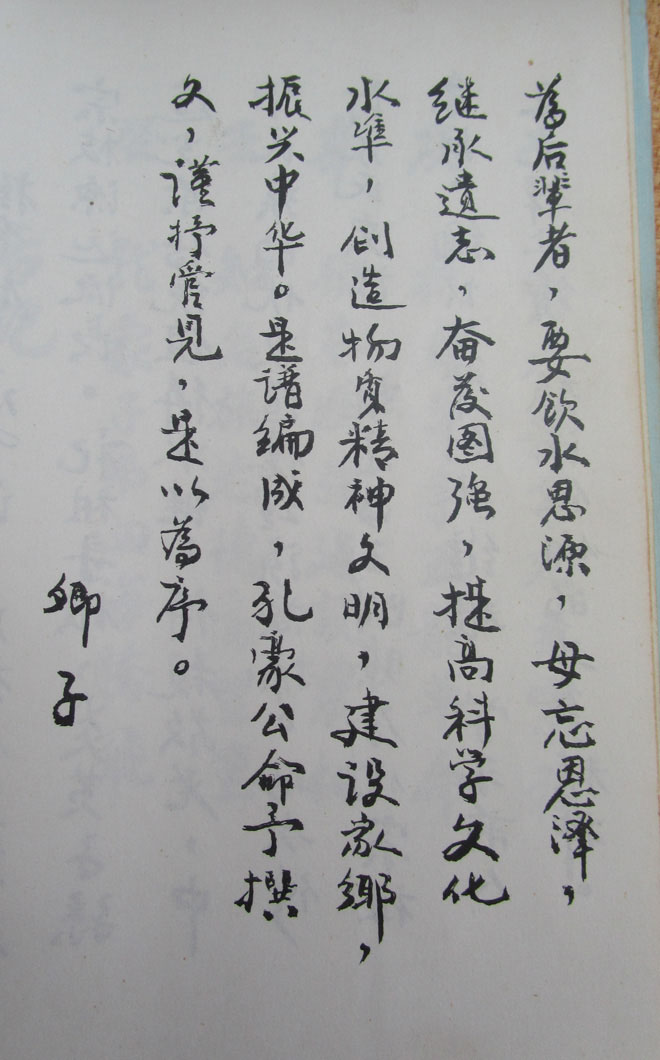 為后辈者，要飲水思源，毋忘恩泽，
继承遺志，奋发图强，提高科学文化
水準，创造物质精神文明，建设家鄉，
振兴中华。是谱编成，孔蒙公命予撰
文，谨抒管見，是以為序。
卿子